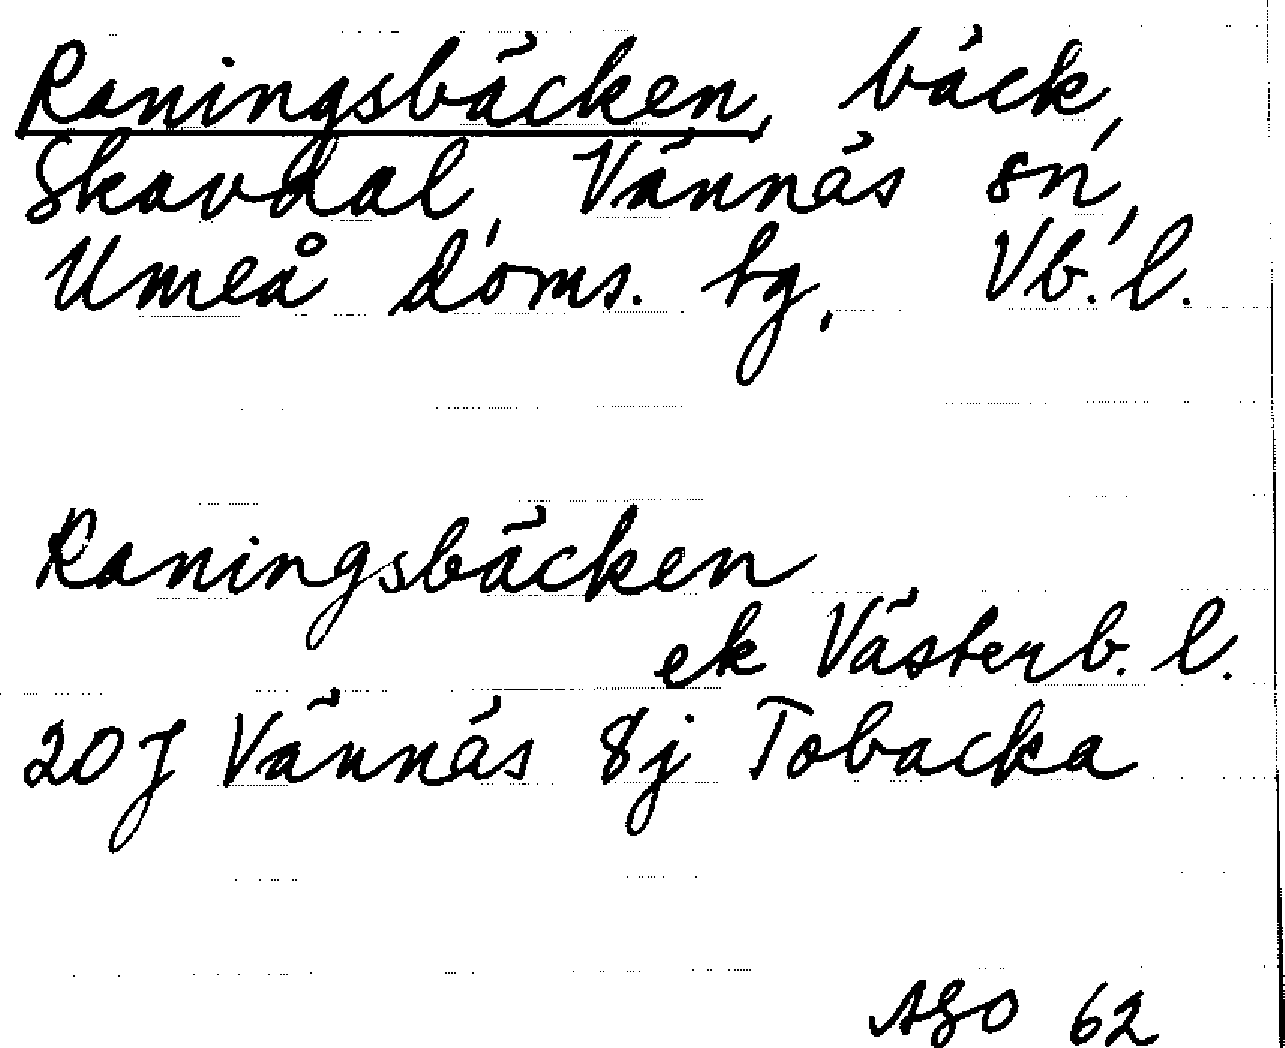 Raningsbäcken, bäck,
Skavdal, Vännäs sn,
Umeå doms. tg, Vb. l.
Raningsbäcken
ek Västerb. l.
20J Vännäs 8j Tobacka
AGO 62